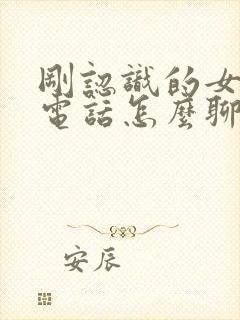 剛認識的女
電話怎麼聊
安辰